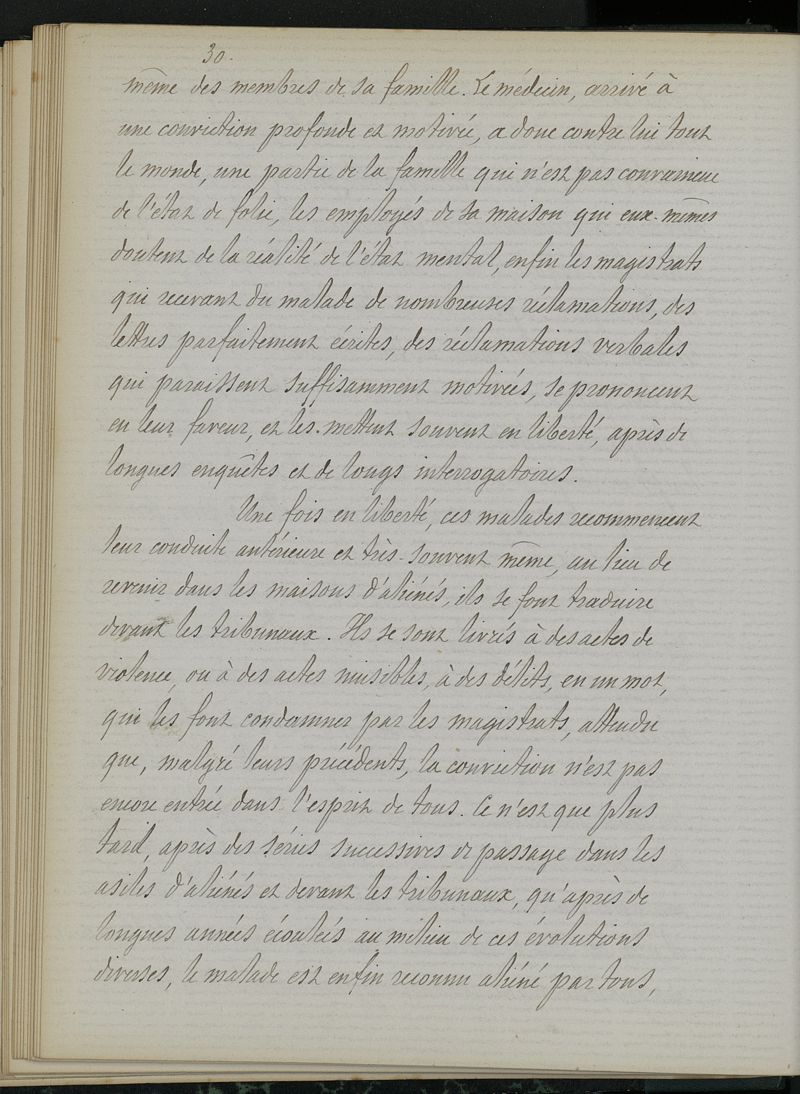 30.
même des membres de sa famille. Le médecin, arrivé à
une conviction profonde et motivée, a donc contre lui tout
le monde, une partie de la famille qui n'est pas convaincue
de l'état de folie, les employés de sa maison qui eux-mêmes
doutent de la réalité de l'état mental, enfin les magistrats
qui recevant du malade de nombreuses réclamations, des
lettres parfaitement écrites, des réclamations verbales
qui paraissent suffisamment motivées, se prononcent
en leur faveur, et les mettent souvent en liberté, après de
longues enquêtes et de longs interrogatoires.
Une fois en liberté, ces malades recommencent
leur conduite antérieure et très-souvent même, au lieu de
revenir dans les maisons d'aliénés, ils se font traduire
devant les tribunaux. Ils se sont livrés à des actes de
violence, ou à des actes nuisibles, à des délits, en un mot,
qui les font condamner par les magistrats, attendu
que, malgré leurs précédents, la conviction n'est pas
encore entrée dans l'esprit de tous. Ce n'est que plus
tard, après des séries successives de passage dans les
asiles d'aliénés et devant les tribunaux, qu'après de
longues années écoulées au milieu de ces évolutions
diverses, le malade est enfin reconnu aliéné par tous,